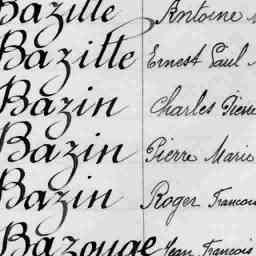 Bazille Antoine
Bazille Ernest Paul
Bazin Charles Pierre
Bazin Pierre Marie
Bazin Roger Francois
Bazouge Jean Francois